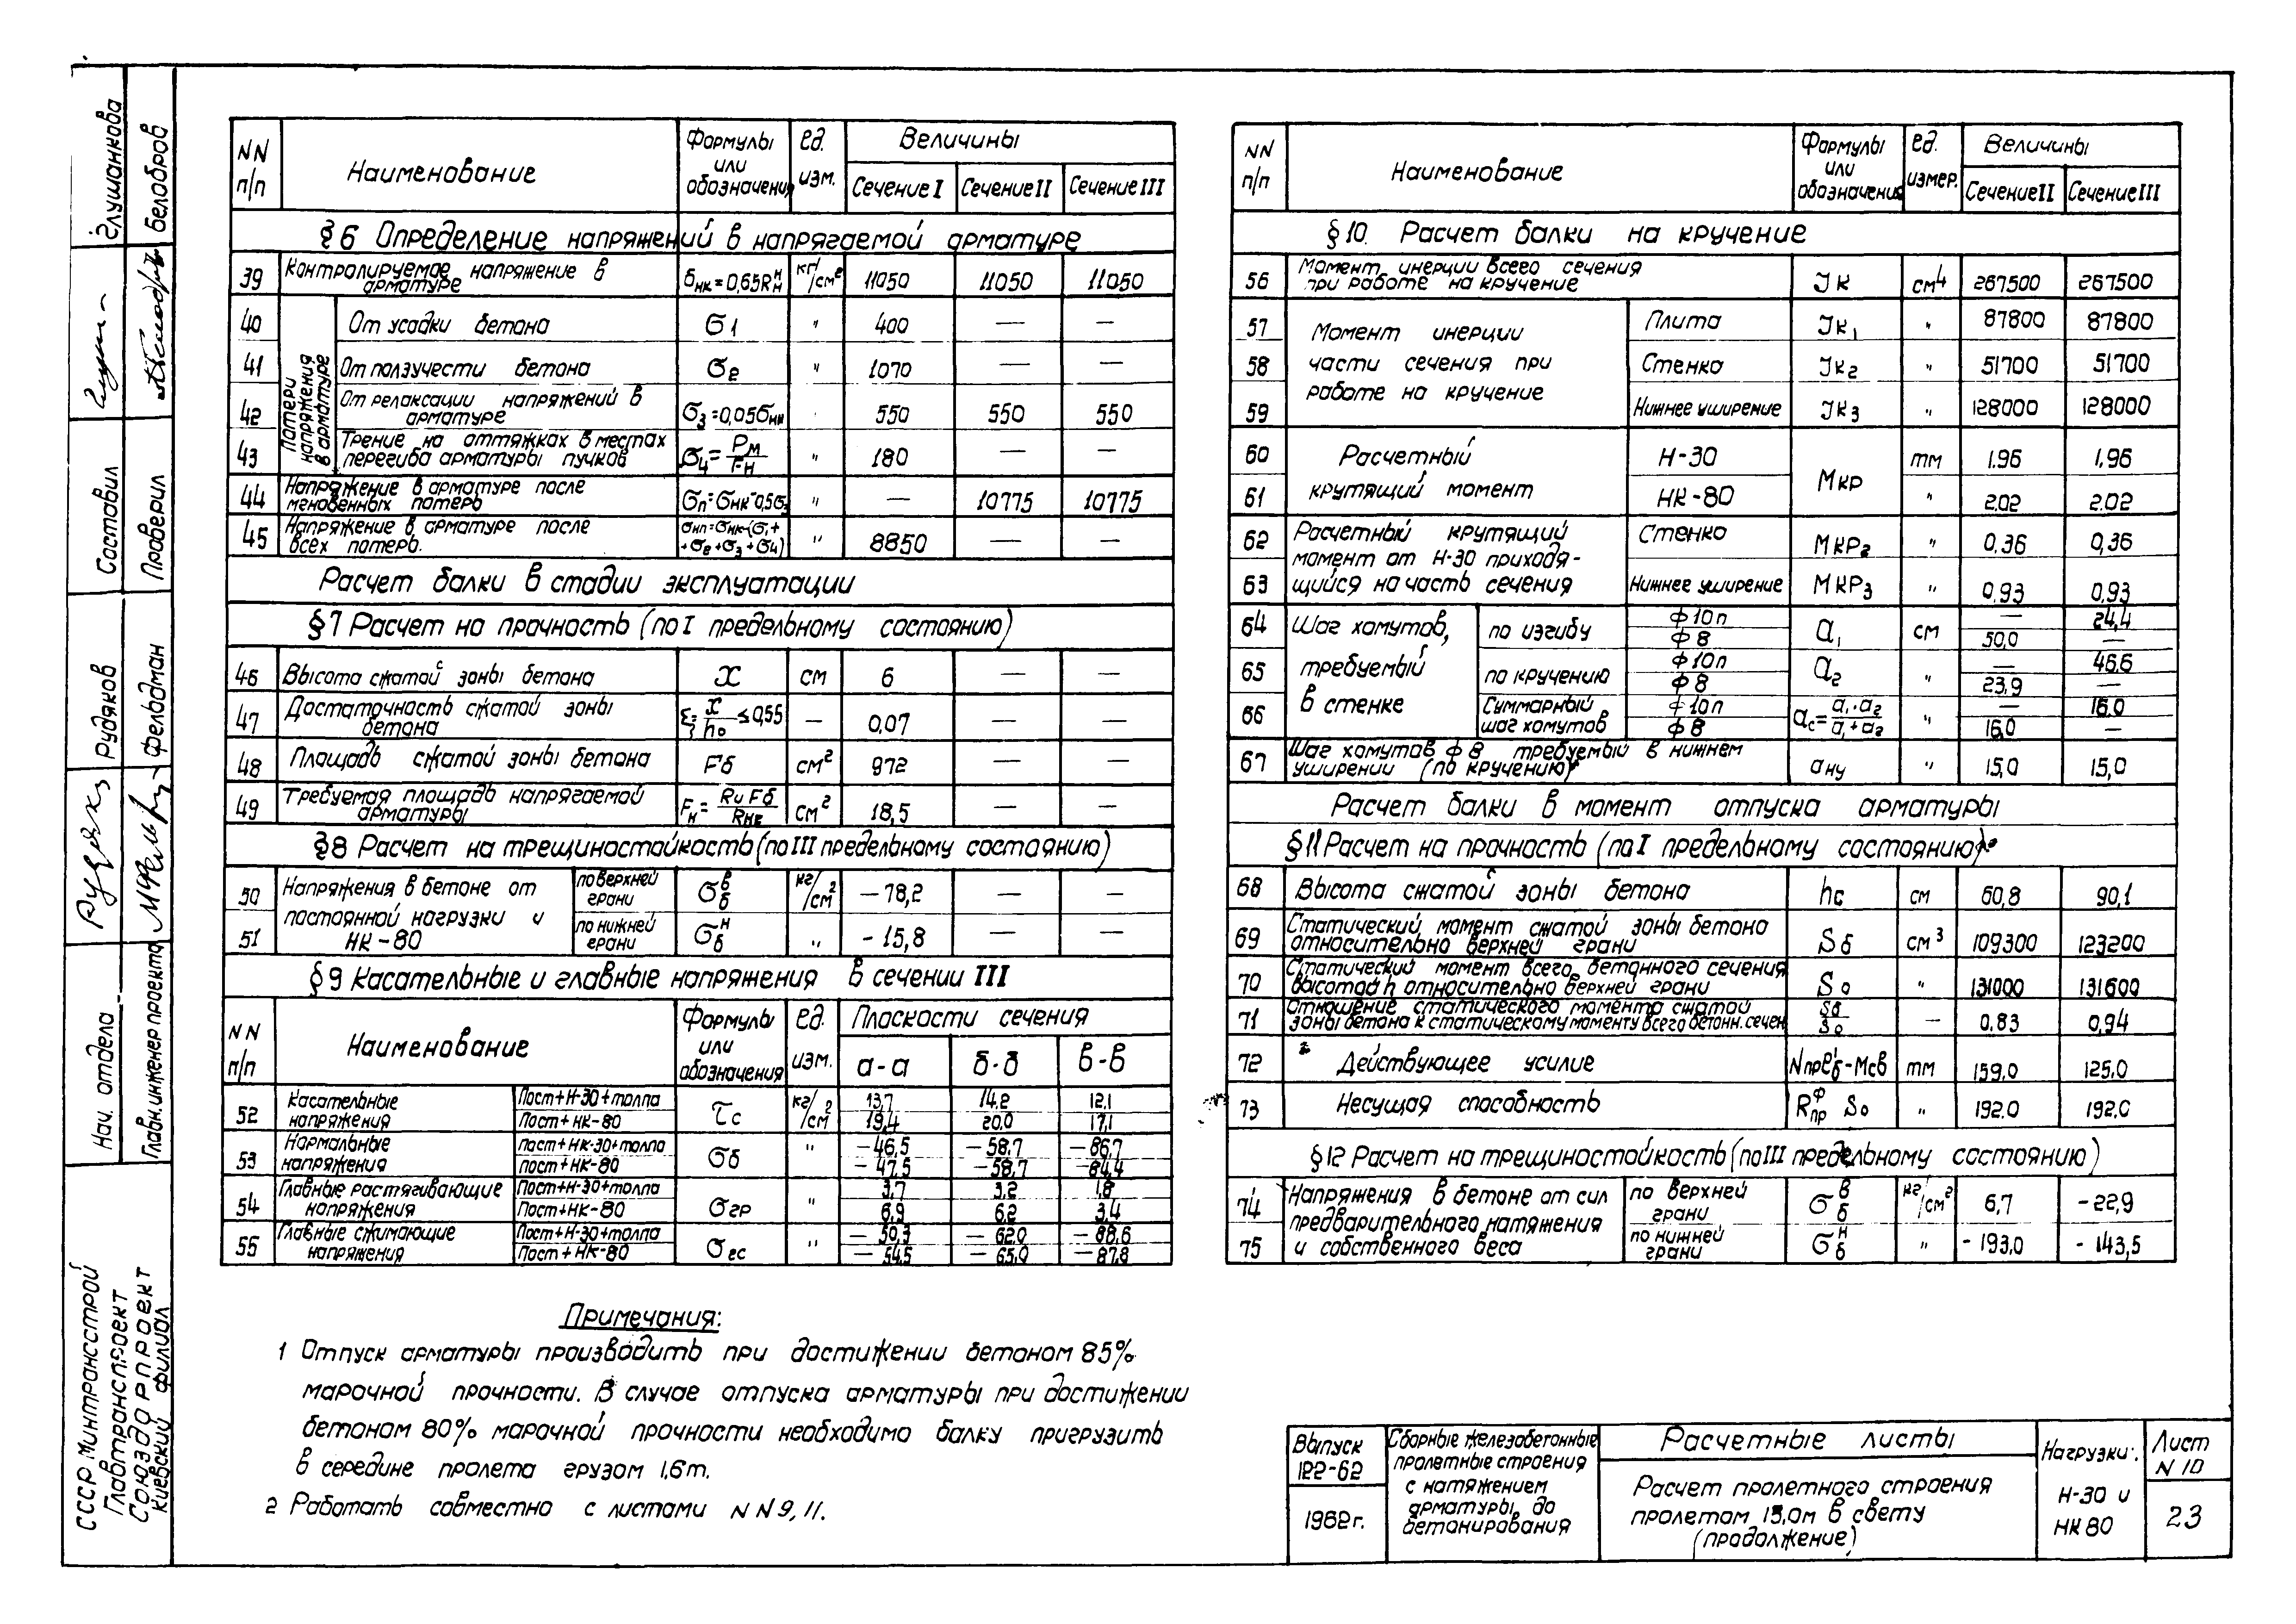 NN п/п | Наименование | Формулы или обозначения | ед. изм. | Величины
Сечение I | Сечение II | Сечение III
§6 Определение напряжений в напрягаемой арматуре
39 | Контролируемое напряжение в арматуре | бнк = 0,65Rнн | кг/см² | 11050 | 11050 | 11050
Потери напряжения в арматуре
40 | От усадки бетона | σ1 | " | 400 | — | —
41 | От ползучести бетона | σ2 | " | 1070 | — | —
42 | От релаксации напряжений в арматуре | σ3 = 0,05σнк | " | 550 | 550 | 550
43 | Трение на оттяжках в местах перегиба арматуры пучков | σ4 = Рм/Fн | " | 180 | — | —
44 | Напряжение в арматуре после мгновенных потерь | σп = σнк - 0,5σ3 | " | — | 10775 | 10775
45 | Напряжение в арматуре после всех потерь. | σнп = σнк - (σ1 + σ2 + σ3 + σ4) | " | 8850 | — | —
Расчет балки в стадии эксплуатации
§7 Расчет на прочность (по I предельному состоянию)
46 | Высота сжатой зоны бетона | x | см | 6 | — | —
47 | Достаточность сжатой зоны бетона | ξ = x/h₀ ≤ 0,55 | — | 0,07 | — | —
48 | Площадь сжатой зоны бетона | Fб | см² | 972 | — | —
49 | Требуемая площадь напрягаемой арматуры | Fн = Rи Fб / Rн2 | см² | 18,5 | — | —
§8 Расчет на трещиностойкость (по III предельному состоянию)
Напряжения в бетоне от постоянной нагрузки и НК-80
50 | по верхней грани | σбв | кг/см² | -78,2 | — | —
51 | по нижней грани | σбн | " | -15,8 | — | —
§9 Касательные и главные напряжения в сечении III
NN п/п | Наименование | Формулы или обозначения | ед. изм. | Плоскости сечения
а-а | б-б | в-в
52 | Касательные напряжения | Пост+Н-30+толпа | τс | кг/см² | 13,7 | 14,2 | 12,1
Пост+НК-80 | 19,4 | 20,0 | 17,1
53 | Нормальные напряжения | пост+НК-30+толпа | σб | " | -46,5 | -58,7 | -86,7
пост+НК-80 | -47,5 | -58,7 | -84,4
54 | Главные растягивающие напряжения | Пост+Н-30+толпа | σгр | " | 3,7 | 3,2 | 1,8
Пост+НК-80 | 6,9 | 6,2 | 3,4
55 | Главные сжимающие напряжения | Пост+Н-30+толпа | σгс | " | -50,3 | -62,0 | -88,6
Пост+НК-80 | -54,5 | -65,0 | -87,8
Примечания:
1 Отпуск арматуры производить при достижении бетоном 85%
марочной прочности. В случае отпуска арматуры при достижении
бетоном 80% марочной прочности необходимо балку пригрузить
в середине пролета грузом 1,6т.
2 Работать совместно с листами NN 9, 11.
NN п/п | Наименование | Формулы или обозначения | ед. измер. | Величины
Сечение II | Сечение III
§10. Расчет балки на кручение
56 | Момент инерции всего сечения при работе на кручение | Jк | см4 | 267500 | 267500
Момент инерции части сечения при работе на кручение
57 | Плита | Jк1 | " | 87800 | 87800
58 | Стенка | Jк2 | " | 51700 | 51700
59 | Нижнее уширение | Jк3 | " | 128000 | 128000
Расчетный крутящий момент
60 | Н-30 | Мкр | тм | 1.96 | 1,96
61 | НК-80 | " | 2.02 | 2.02
Расчетный крутящий момент от Н-30 приходящийся на часть сечения
62 | Стенка | Мкр2 | " | 0,36 | 0,36
63 | Нижнее уширение | Мкр3 | " | 0,93 | 0,93
Шаг хомутов, требуемый в стенке
64 | по изгибу | ф10п | a1 | см | — | 24,4
ф8 | 50,0 | —
65 | по кручению | ф10п | a2 | " | — | 46,6
ф8 | 23,9 | —
66 | Суммарный шаг хомутов | ф10п | aс = a1·a2 / a1+a2 | " | — | 16.0
ф8 | 16,0 | —
67 | Шаг хомутов ф8 требуемый в нижнем уширении (по кручению) | aну | " | 15,0 | 15,0
Расчет балки в момент отпуска арматуры
§11 Расчет на прочность (по I предельному состоянию)
68 | Высота сжатой зоны бетона | hс | см | 60,8 | 90,1
69 | Статический момент сжатой зоны бетона относительно верхней грани | Sб | см³ | 109300 | 123200
70 | Статический момент всего бетонного сечения высотой h относительно верхней грани | Sо | " | 131000 | 131600
71 | Отношение статического момента сжатой зоны бетона к статическому моменту всего бетонн. сечен | Sб/Sо | — | 0.83 | 0,94
72 | Действующее усилие | Nпрe'б-Мсв | тм | 159,0 | 125.0
73 | Несущая способность | Rпрф Sо | " | 192.0 | 192,0
§12 Расчет на трещиностойкость (по III предельному состоянию)
Напряжения в бетоне от сил предварительного натяжения и собственного веса
74 | по верхней грани | σбв | кг/см² | 6,7 | -22,9
75 | по нижней грани | σбн | " | -193,0 | -143,5
Выпуск 122-62
1962г.
Сборные железобетонные
пролетные строения
с натяжением
арматуры до
бетонирования
Расчетные листы
Расчет пролетного строения
пролетом 15,0м в свету
(продолжение)
Нагрузки:
Н-30 и
НК80
Лист
N 10
23
Глушанкова
Белобров
Составил
Проверил
Рудяков
Фельдман
Нач. отдела
Главн. инженер проекта
СССР Минтрансстрой
Главтранспроект
Союздорпроект
Киевский филиал